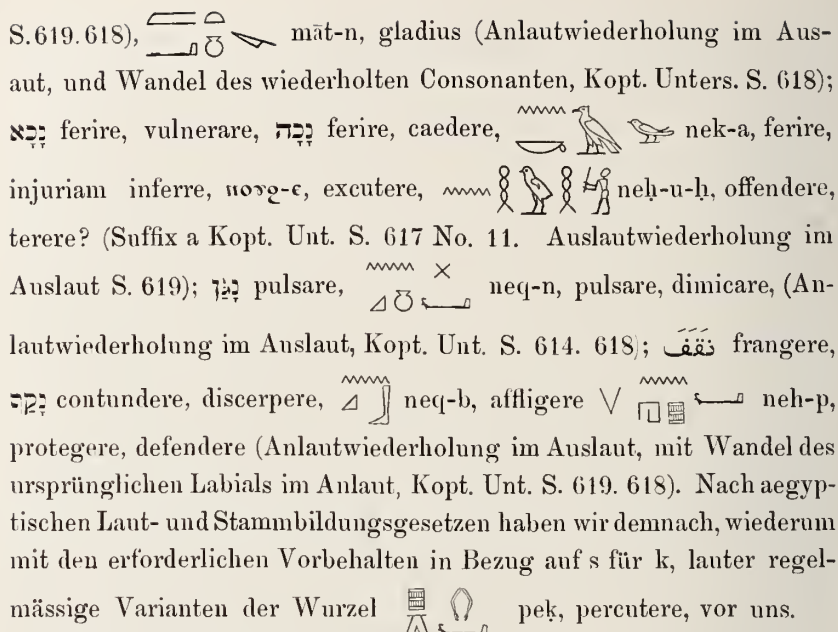 S.619.618), māt-n, gladius (Anlautwiederholung im Aus-
aut, und Wandel des wiederholten Consonanten, Kopt. Unters. S. 618);
נָכָא ferire, vulnerare, נָכָה ferire, caedere, nek-a, ferire,
injuriam inferre, ⲛⲟⲩϩ-ⲉ, excutere, neḥ-u-ḥ, offendere,
terere? (Suffix a Kopt. Unt. S. 617 No. 11. Auslautwiederholung im
Auslaut S. 619); נָגַן pulsare, neq-n, pulsare, dimicare, (An-
lautwiederholung im Auslaut, Kopt. Unt. S. 614. 618); نَقَفَ frangere,
נָקַף contundere, discerpere, neq-b, affligere V neh-p,
protegere, defendere (Anlautwiederholung im Auslaut, mit Wandel des
ursprünglichen Labials im Anlaut, Kopt. Unt. S. 619. 618). Nach aegyp-
tischen Laut- und Stammbildungsgesetzen haben wir demnach, wiederum
mit den erforderlichen Vorbehalten in Bezug auf s für k, lauter regel-
mässige Varianten der Wurzel peḳ, percutere, vor uns.